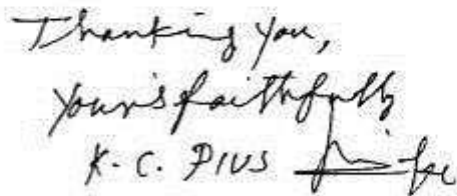 Thanking you,
your's faithfully
K. C. PIUS